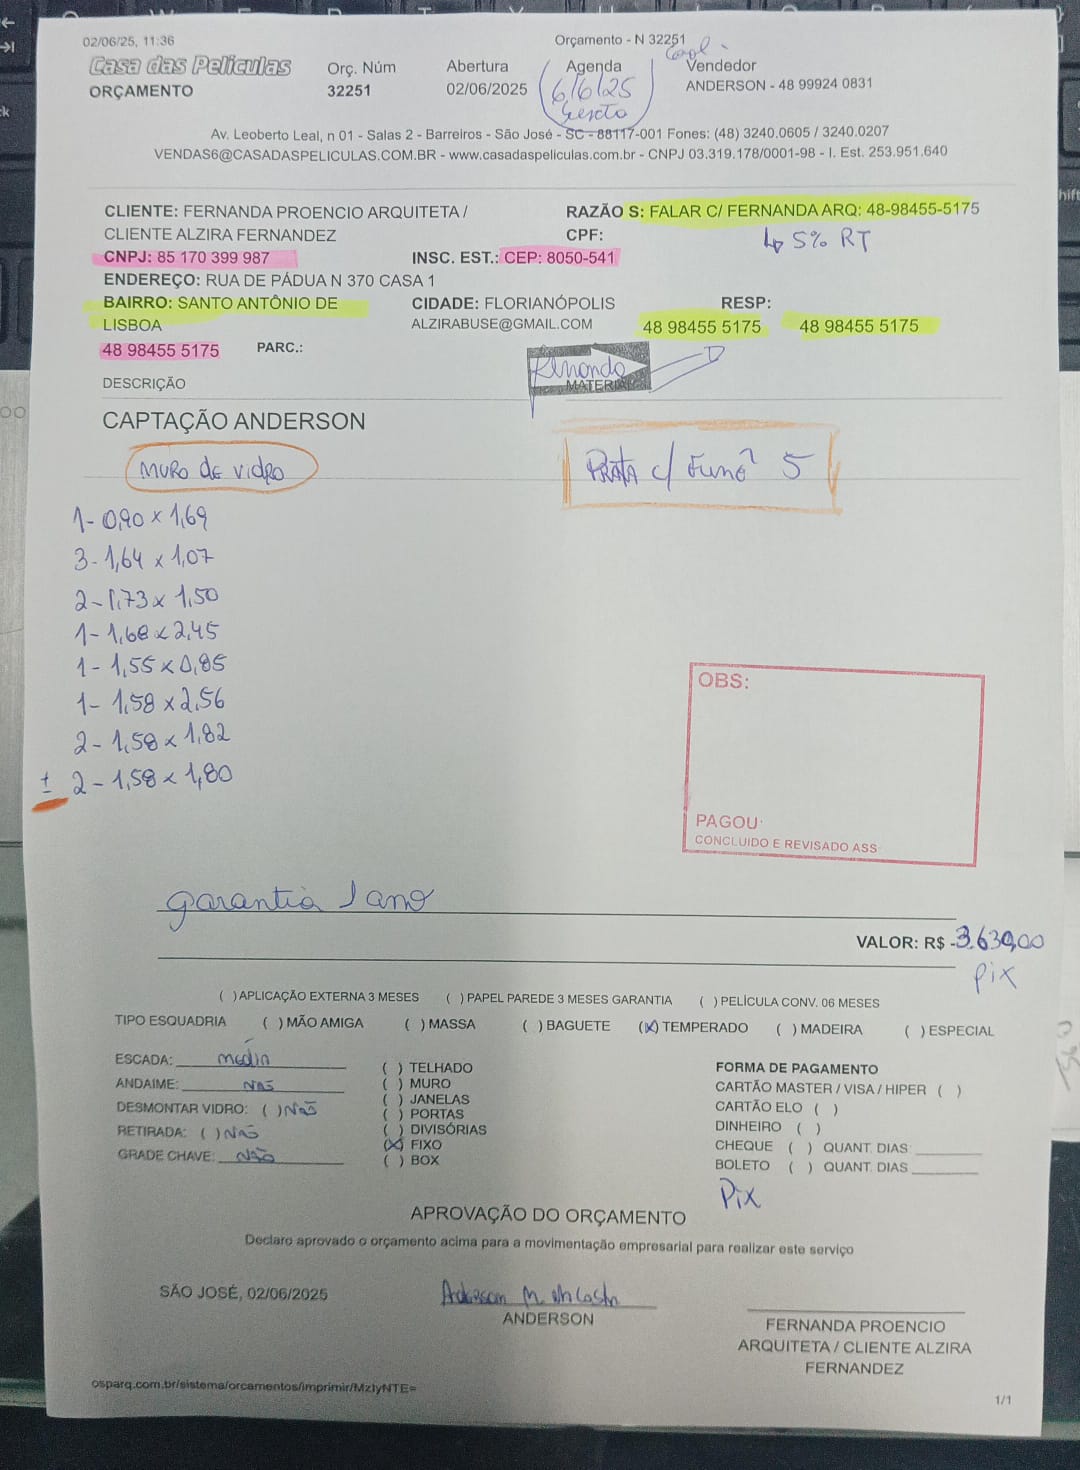 02/06/25, 11:36
Orçamento - N 32251
Casa das Películas
ORÇAMENTO
Orç. Núm
32251
Abertura
02/06/2025
Agenda
6/6/25
Sexta
Vendedor
ANDERSON - 48 99924 0831
Av. Leoberto Leal, n 01 - Salas 2 - Barreiros - São José - SC - 88117-001 Fones: (48) 3240.0605 / 3240.0207
VENDAS6@CASADASPELICULAS.COM.BR - www.casadaspeliculas.com.br - CNPJ 03.319.178/0001-98 - I. Est. 253.951.640
CLIENTE: FERNANDA PROENCIO ARQUITETA /
CLIENTE ALZIRA FERNANDEZ
RAZÃO S: FALAR C/ FERNANDA ARQ: 48-98455-5175
CPF:
↳ 5% RT
CNPJ: 85 170 399 987
INSC. EST.: CEP: 8050-541
ENDEREÇO: RUA DE PÁDUA N 370 CASA 1
BAIRRO: SANTO ANTÔNIO DE
LISBOA
CIDADE: FLORIANÓPOLIS
RESP:
ALZIRABUSE@GMAIL.COM
48 98455 5175
48 98455 5175
48 98455 5175
PARC.:
DESCRIÇÃO
MATERIAL
CAPTAÇÃO ANDERSON
MURO DE VIDRO
PRATA c/ Fumê 5
1- 0,90 x 1,69
3- 1,64 x 1,07
2- 1,73 x 1,50
1- 1,68 x 2,45
1- 1,55 x 0,85
1- 1,58 x 2,56
2- 1,58 x 1,82
± 2- 1,58 x 1,80
OBS:
PAGOU:
CONCLUIDO E REVISADO ASS
garantia 1 ano
VALOR: R$ 3.630,00
Pix
( ) APLICAÇÃO EXTERNA 3 MESES ( ) PAPEL PAREDE 3 MESES GARANTIA ( ) PELÍCULA CONV. 06 MESES
TIPO ESQUADRIA ( ) MÃO AMIGA ( ) MASSA ( ) BAGUETE (X) TEMPERADO ( ) MADEIRA ( ) ESPECIAL
ESCADA: média
ANDAIME: NÃO
DESMONTAR VIDRO: ( ) NÃO
RETIRADA: ( ) NÃO
GRADE CHAVE: NÃO
( ) TELHADO
( ) MURO
( ) JANELAS
( ) PORTAS
( ) DIVISÓRIAS
(X) FIXO
( ) BOX
FORMA DE PAGAMENTO
CARTÃO MASTER / VISA / HIPER ( )
CARTÃO ELO ( )
DINHEIRO ( )
CHEQUE ( ) QUANT. DIAS
BOLETO ( ) QUANT. DIAS
Pix
APROVAÇÃO DO ORÇAMENTO
Declaro aprovado o orçamento acima para a movimentação empresarial para realizar este serviço
SÃO JOSÉ, 02/06/2025
ANDERSON
FERNANDA PROENCIO
ARQUITETA / CLIENTE ALZIRA
FERNANDEZ
osparq.com.br/sistema/orcamentos/imprimir/MzIyNTE=
1/1